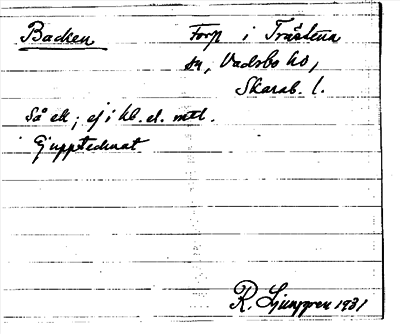 Backen
Torp i Trästena
sn, Vadsbo hd,
Skarab. l.
Så ek; ej i kb. el. mtl.
Ej upptecknat
R. Ljunggren 1931